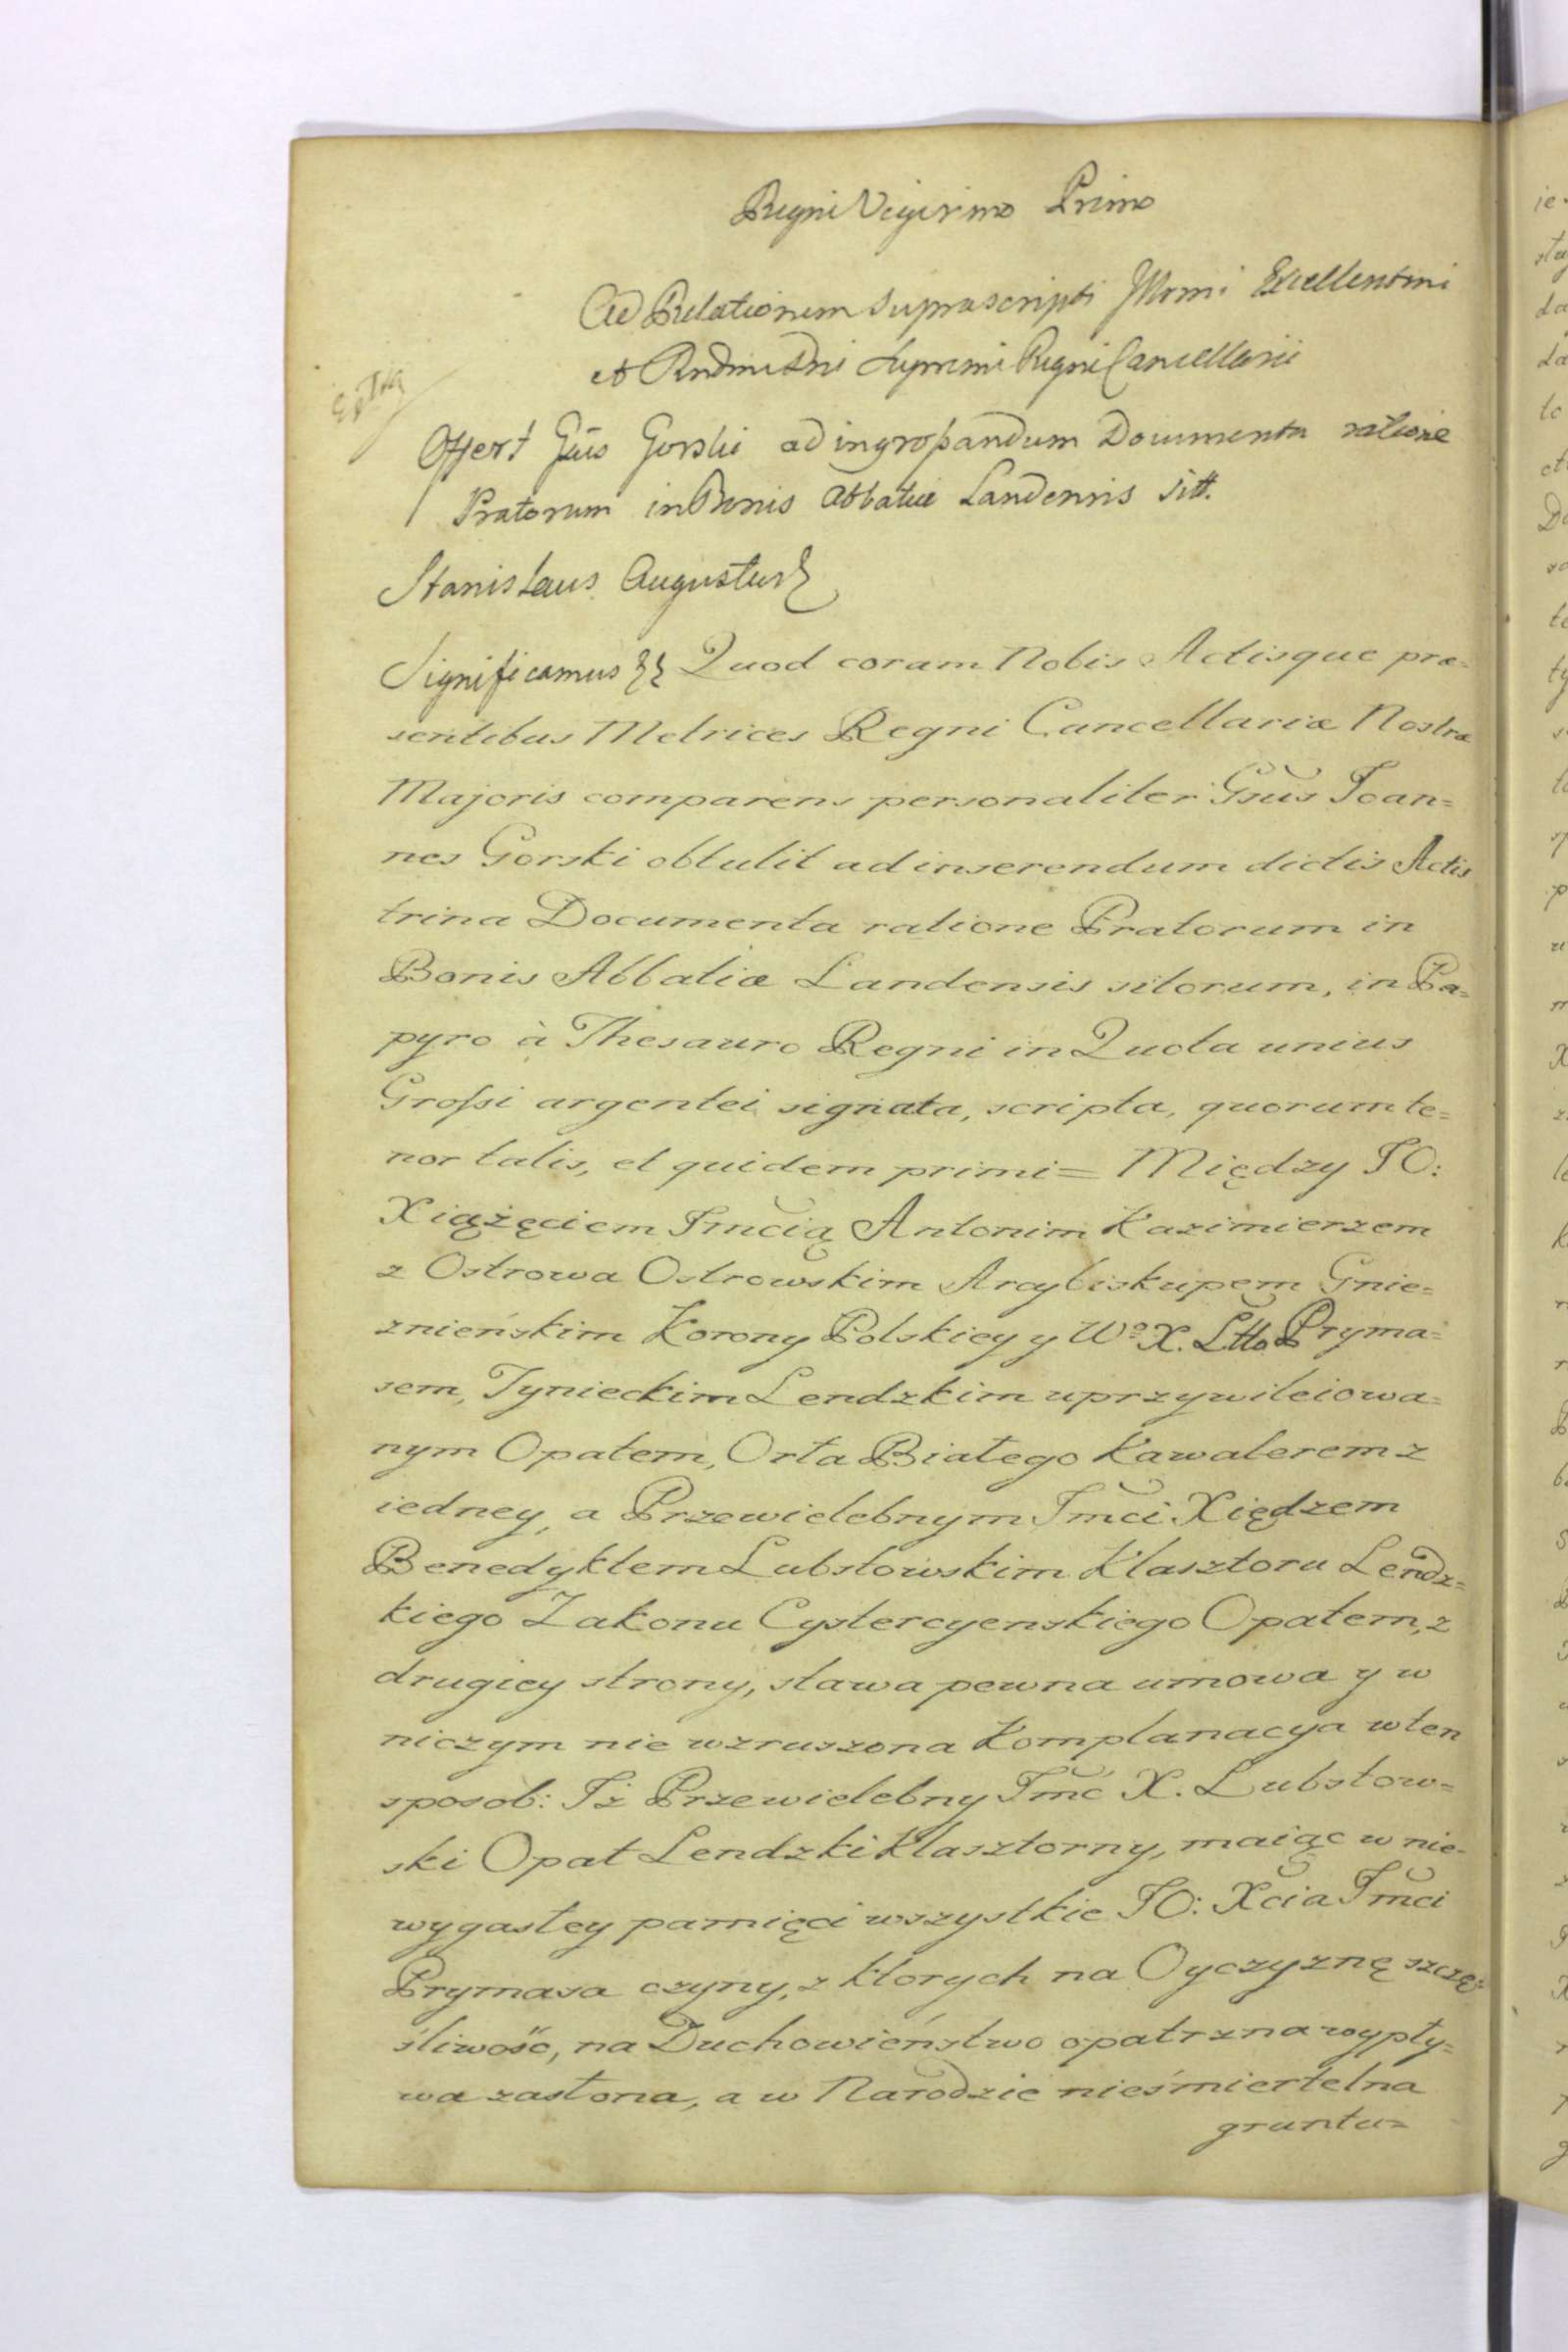 Regni Vigesimo Primo
Ad Relationem suprascripti Illmi Excellentmi
et Rndmi Dni Supremi Regni Cancellarii
Offert Gus Gorski ad ingrossandum Documenta ratione
Pratorum in Bonis Abbatiæ Landensis sitt.
Stanislaus Augustus
Significamus Quod coram Nobis Actisque præ=
sentibus Metrices Regni Cancellariæ Nostræ
Majoris comparens personaliter Gsūs Joan=
nes Gorski obtulit ad inserendum dictis Actis
trina Documenta ratione Pratorum in
Bonis Abbatiæ Landensis sitorum, in Pa=
pyro à Thesauro Regni in Quota unius
Grossi argentei signata, scripta, quorum te=
nor talis, et quidem primi= Między JO:
Xiążęciem Jmcią Antonim Kazimierzem
z Ostrowa Ostrowskim Arcybiskupem Gnie=
znieńskim Korony Polskiey y Wo X. Ltto Pryma=
sem, Tynieckim Lendzkim uprzywileiowa=
nym Opatem, Orła Białego Kawalerem z
iedney, a Przewielebnym Jmci Xiędzem
Benedyktem Lubstowskim Klasztoru Lendz=
kiego Zakonu Cystercyenskiego Opatem, z
drugiey strony, stawa pewna umowa y w
niczym nie wzruszona Komplanacya w ten
sposob: Iż Przewielebny Jmć X. Lubstow=
ski Opat Lendzki Klasztorny, maiąc w nie=
wygasłey pamięci wszystkie JO: Xcia Jmci
Prymasa czyny, z ktorych na Oyczyznę szczę=
śliwość, na Duchowieństwo opatrzna wypły=
wa zasłona, a w Narodzie nieśmiertelna
gruntu=